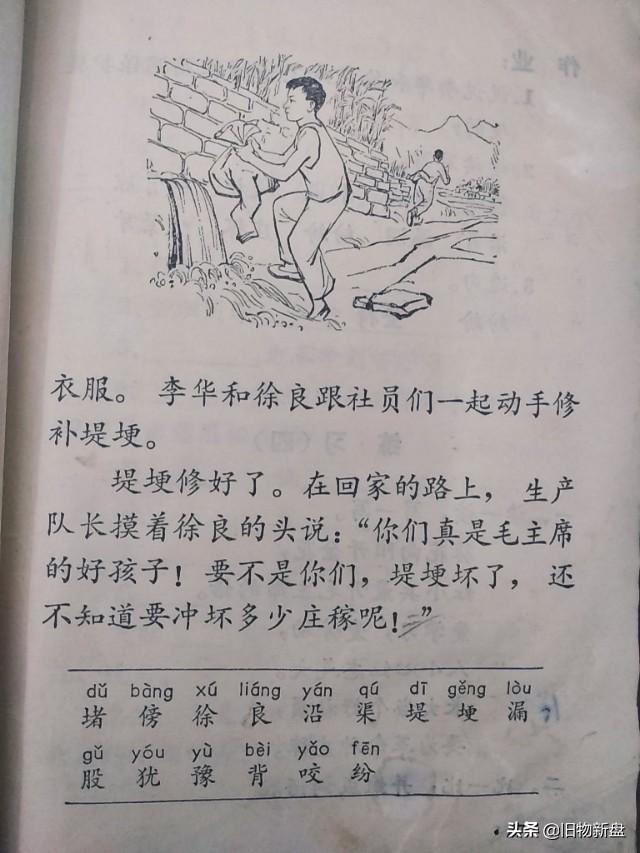 衣服。 李华和徐良跟社员们一起动手修
补堤埂。
堤埂修好了。在回家的路上， 生产
队长摸着徐良的头说：“你们真是毛主席
的好孩子！要不是你们，堤埂坏了， 还
不知道要冲坏多少庄稼呢！”
dǔ bàng xú liáng yán qú dī gěng lòu
堵 傍 徐 良 沿 渠 堤 埂 漏
gǔ yóu yù bèi yǎo fēn
股 犹 豫 背 咬 纷
头条 @旧物新盘